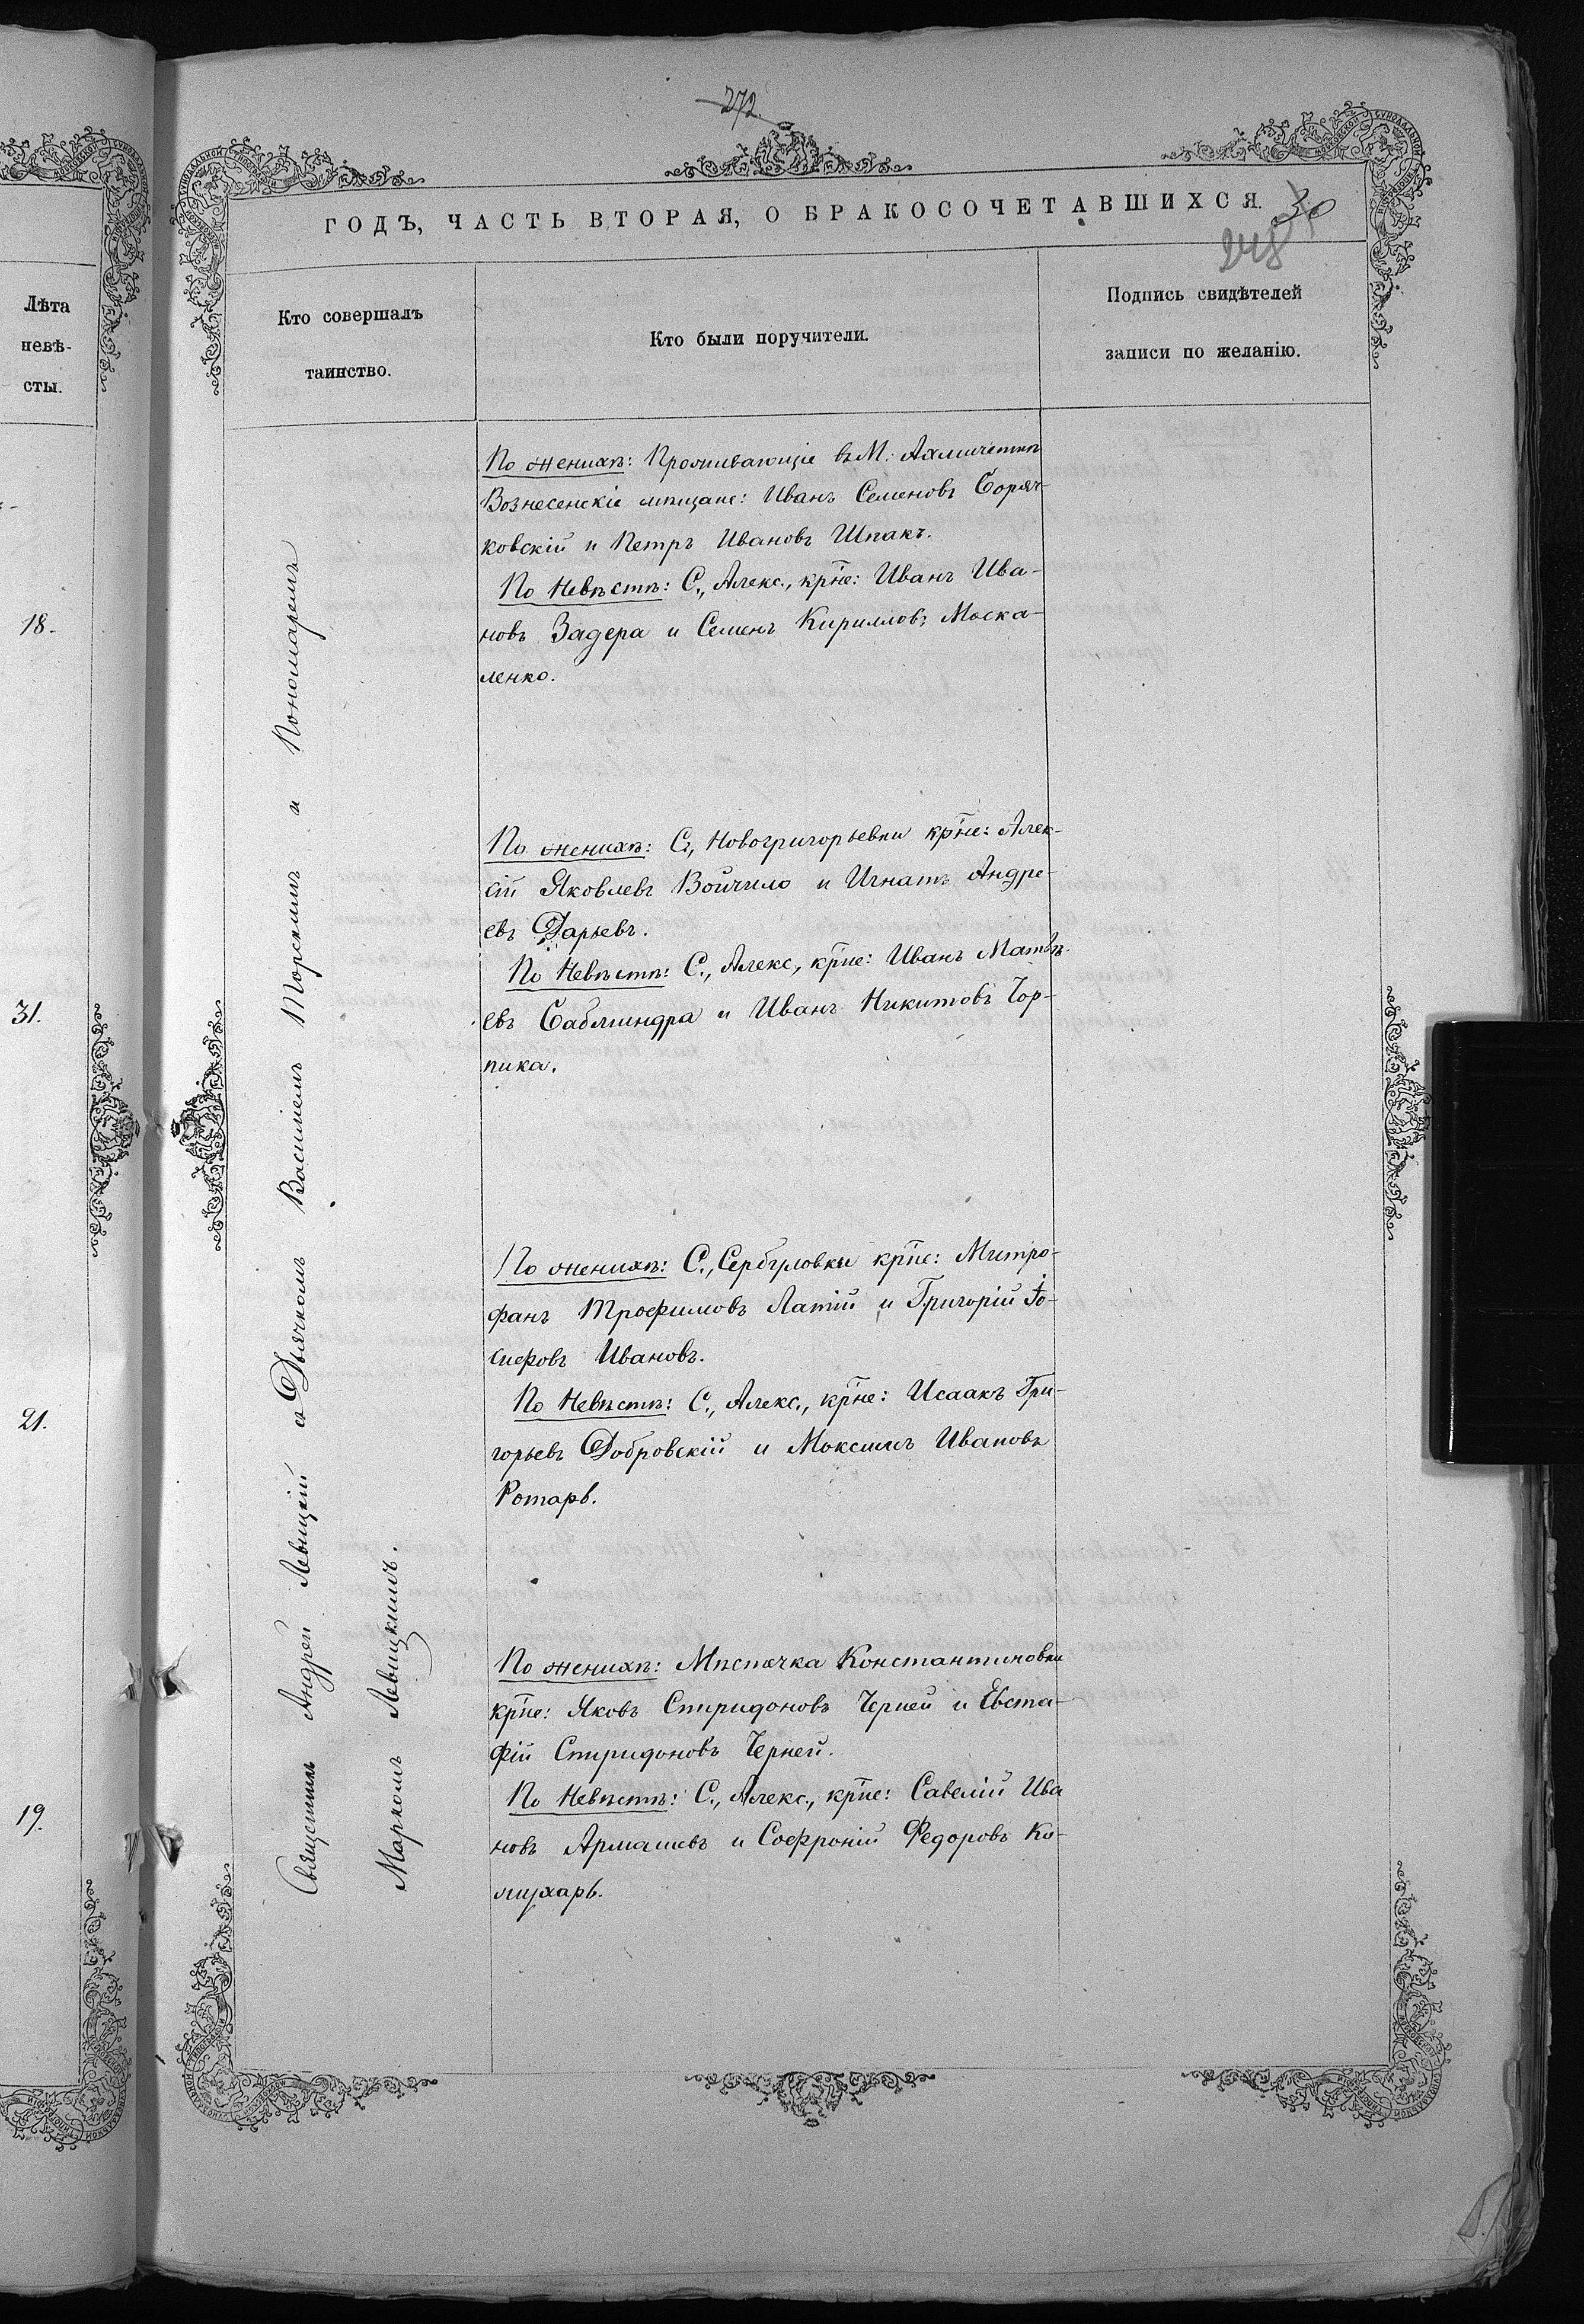 272
ГОДЪ, ЧАСТЬ ВТОРАЯ, О БРАКОСОЧЕТАВШИХСЯ.
30
248
Лѣта
невѣ-
сты.
18.
31.
21.
19.
Кто совершалъ
таинство.
Кто были поручители.
Подпись свидѣтелей
записи по желанію.
Священникъ Андрей Левицкій съ Дьячкомъ Василіемъ Торскимъ и Пономаремъ
Маркомъ Левицкимъ.
По женихѣ: Проживающіе въ М. Ахмичеткѣ
Вознесенскіе мѣщане: Иванъ Семеновъ Боряч-
ковскій и Петръ Ивановъ Шпакъ.
По Невѣстѣ: С., Алекс., кр̃не: Иванъ Ива-
новъ Задера и Семенъ Кирилловъ Моска-
ленко.
По женихѣ: С., Новогригорьевки кр̃не: Алек-
сій Яковлевъ Войчило и Игнатъ Андре-
евъ Дарьевъ.
По Невѣстѣ: С., Алекс., кр̃не: Иванъ Матвѣ-
евъ Саблиндра и Иванъ Никитовъ Чор-
пика.
По женихѣ: С., Сербуловки кр̃не: Митро-
фанъ Трофимовъ Латій и Григорій Іо-
сифовъ Ивановъ.
По Невѣстѣ: С., Алекс., кр̃не: Исаакъ Гри-
горьевъ Добровскій и Моксимъ Ивановъ
Ротарь.
По женихѣ: Мѣстечка Константиновки
кр̃не: Яковъ Спиридоновъ Черней и Евста-
фій Спиридоновъ Черней.
По Невѣстѣ: С., Алекс., кр̃не: Савелій Ива
новъ Армашевъ и Софроній Федоровъ Ко-
жухарь.